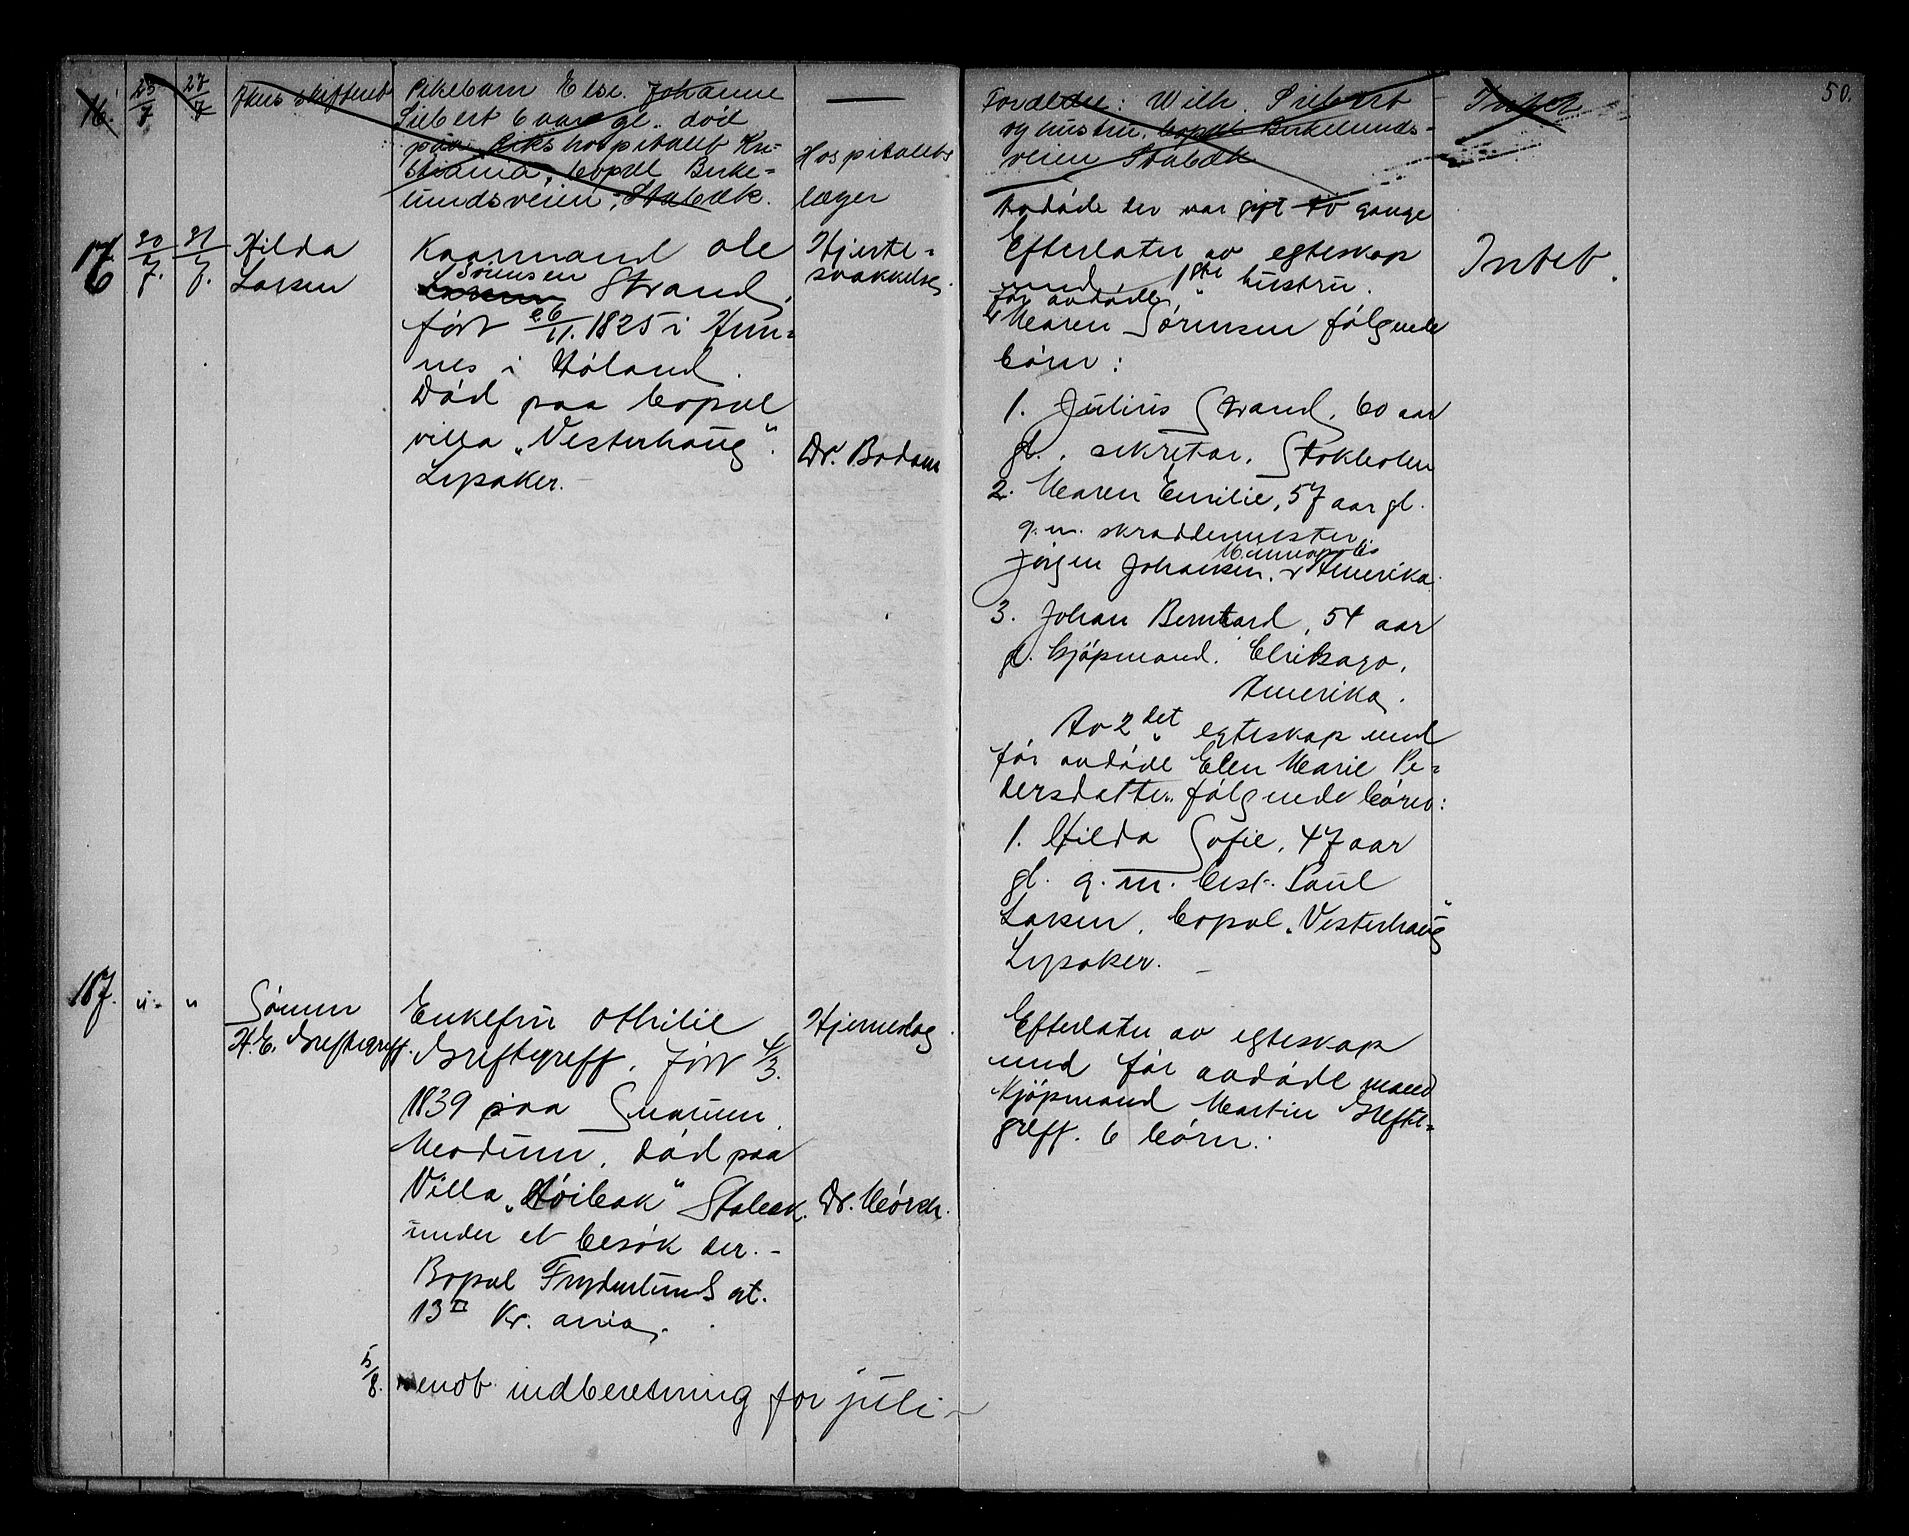 50.
16. 25/7 27/7
Pikebarn Else Johanne
Siebert 6 aar gl. død
paa Rikshospitalet Kri-
stiania, bopæl Birke-
lundsveien, Stabæk.
—
Hospitalets
læger
Forældre: Wilh. Siebert
og hustru, bopæl Birkelunds-
veien Stabæk
Intet
17 30/7. 31/7.
Hilda
Larsen
Kaarmand Ole
Sørensen
Larsen Strand,
født 26/11. 1825 i Hem-
nes i Høland.
Død paa bopæl
villa „Vesterhaug".
Lysaker. -
Hjerte-
svækkelse.
Dr. Bodom
Avdøde der var gift to gange
Efterlater av egteskap
med 1ste hustru.
før avdøde
Maren Sørensen følgende
børn:
1. Julius Strand, 60 aar
gl., sekretær, Stokholm
2. Maren Emilie, 57 aar gl.
g. m. skræddermester
Minneapolis
Jörgen Johansen, Amerika.
3. Johan Bernhard, 54 aar
gl. kjøpmand. Chikago,
Amerika.
Av 2det egteskap med
før avdøde Elen Marie Pe-
dersdatter følgende børn:
1. Hilda Sofie, 47 aar
gl. g. m. best. Paul
Larsen, bopæl „Vesterhaug"
Lysaker. -
Intet.
187. "- "
Sønnen
H. E. Greftegreff.
Enkefru Othilie
Greftegreff, født 4/3.
1839 paa Snarum,
Modum, død paa
Villa „Høibak" Stabæk.
under et besøk der. -
Bopæl Frydenlunds gt.
13 II Kr. ania.
Hjerneslag.
Dr. Mørch.
Efterlater av egteskap
med før avdøde mand
Kjøpmand Martin Grefte-
greff. 6 børn.
5/8. sendt indberetning for juli -